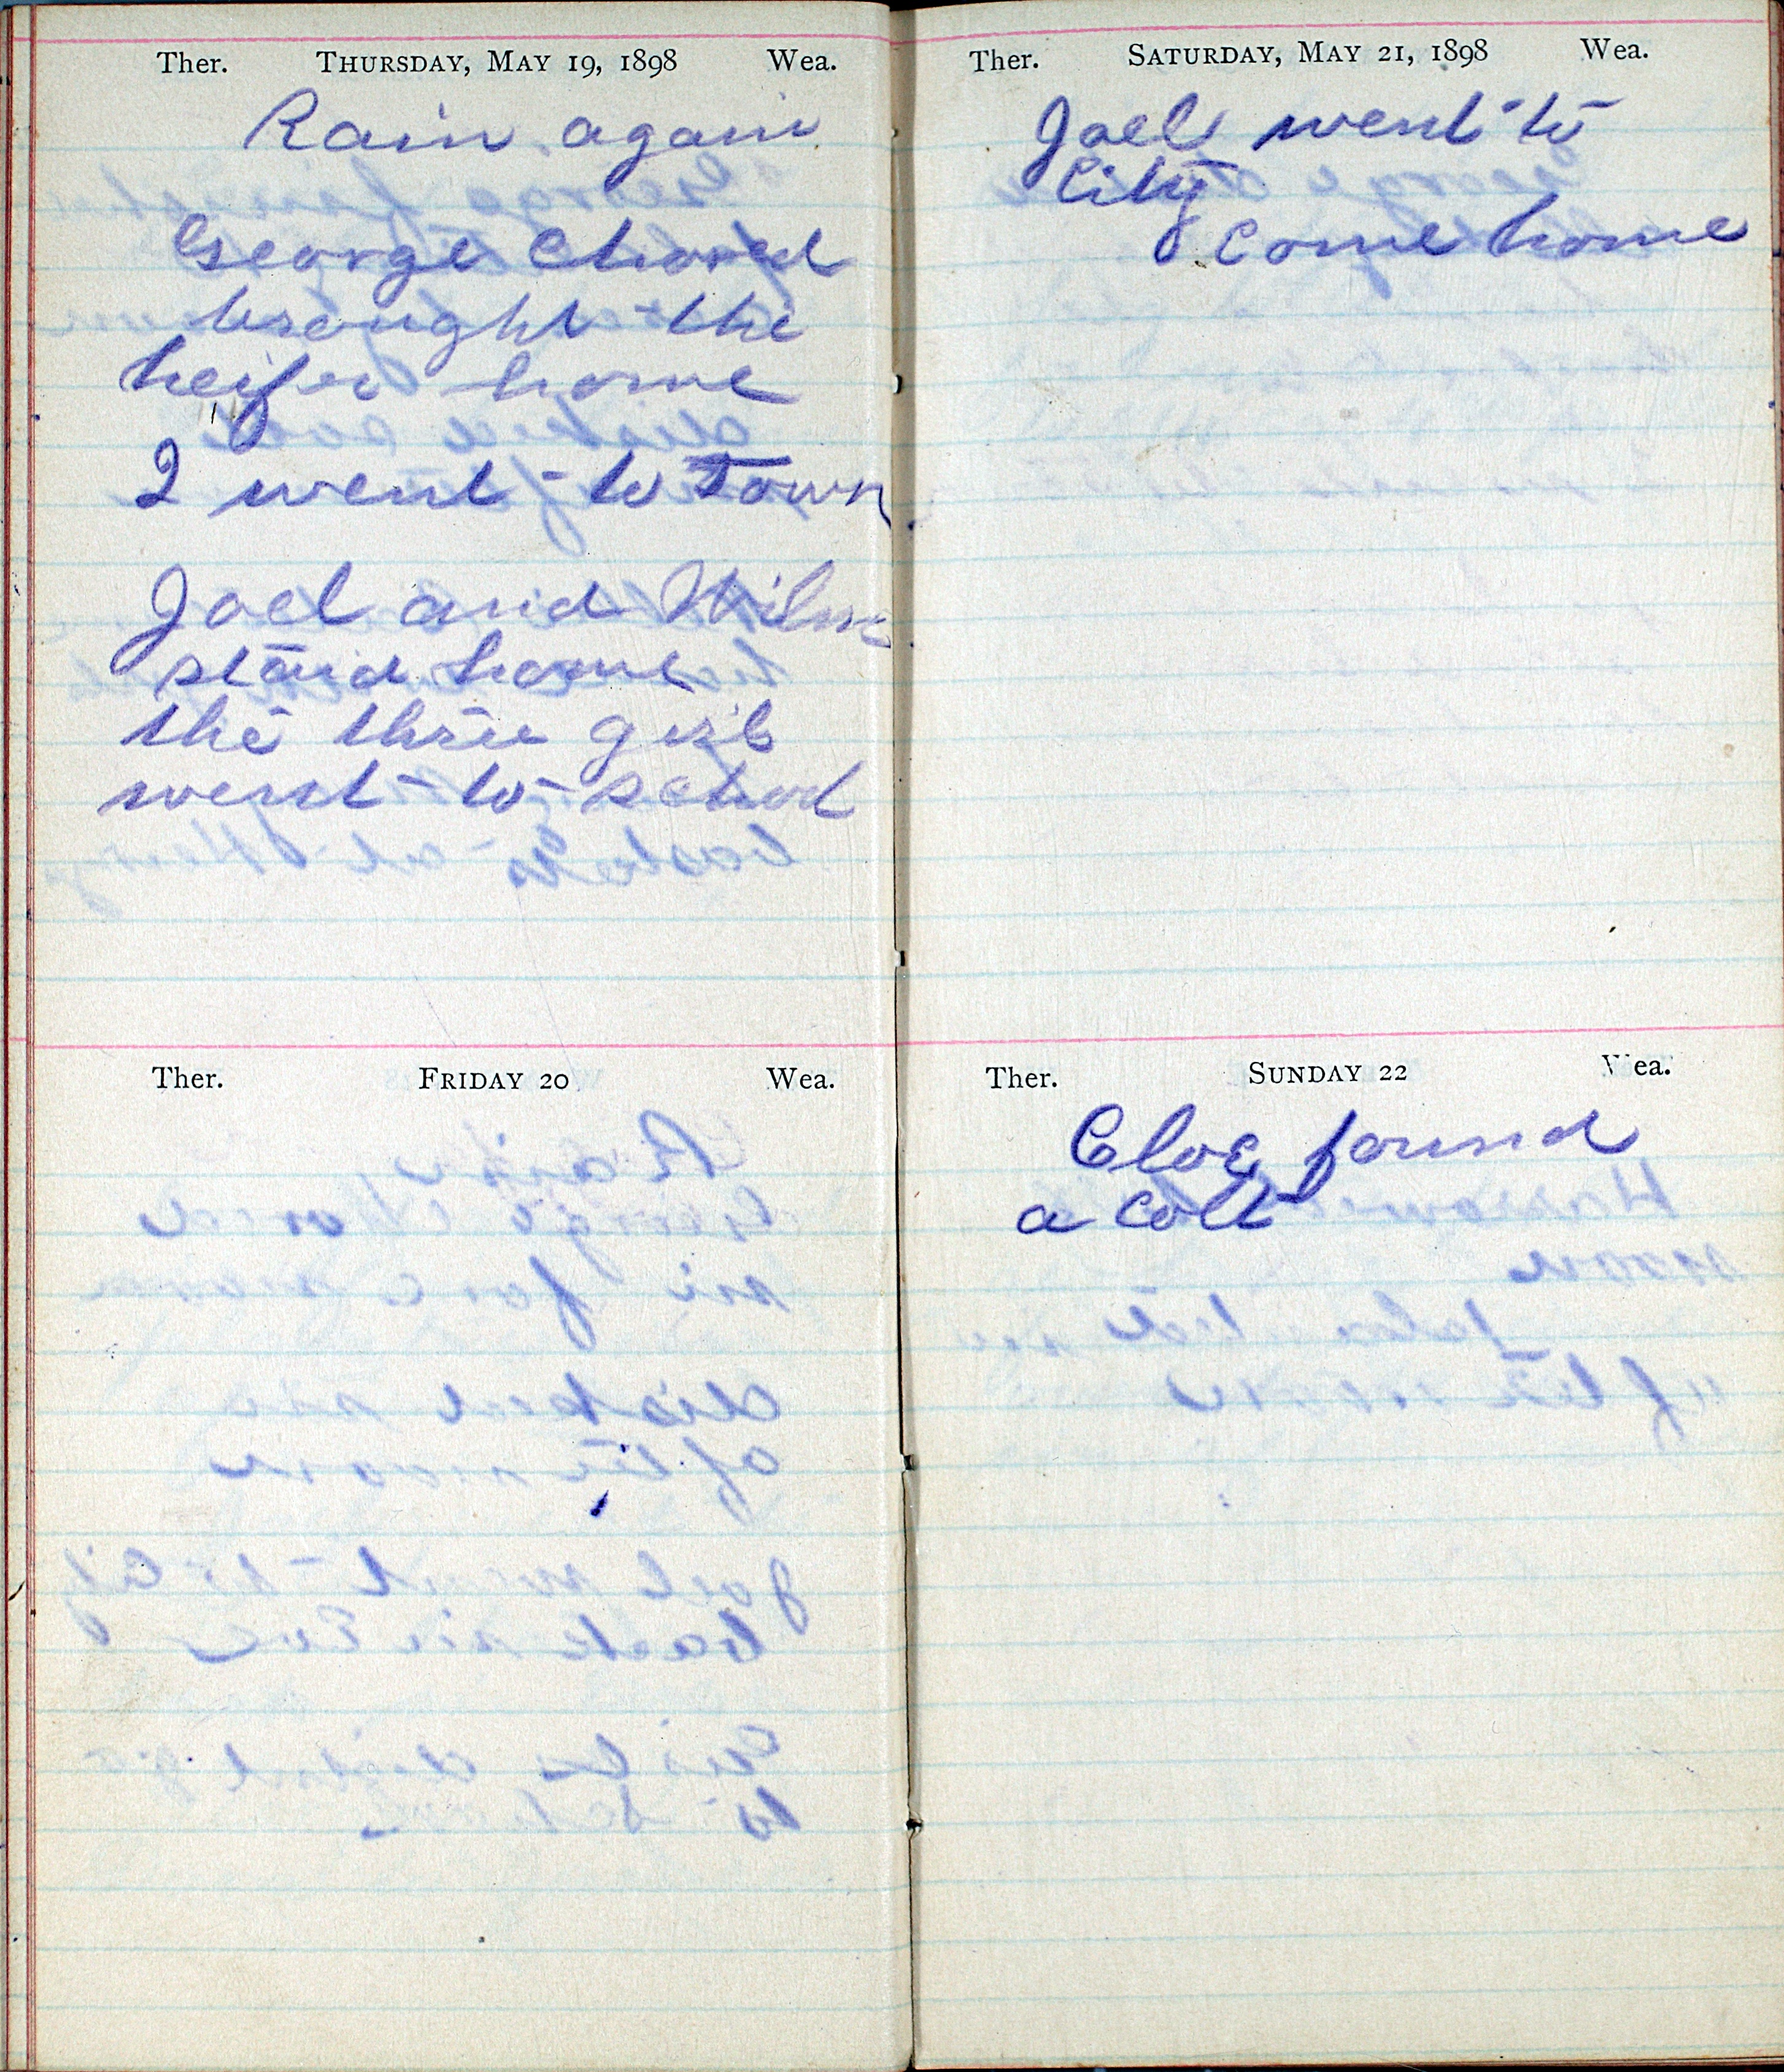 Ther. THURSDAY, MAY 19, 1898 Wea.
Rain again
George Chored
brought the
heifer home
I went to Town
Joel and Wilm
staid home
the three girls
went to school
Ther. FRIDAY 20 Wea.
Ther. SATURDAY, MAY 21, 1898 Wea.
Joel went to
City
Come home
Ther. SUNDAY 22 Wea.
Cloe found
a colt